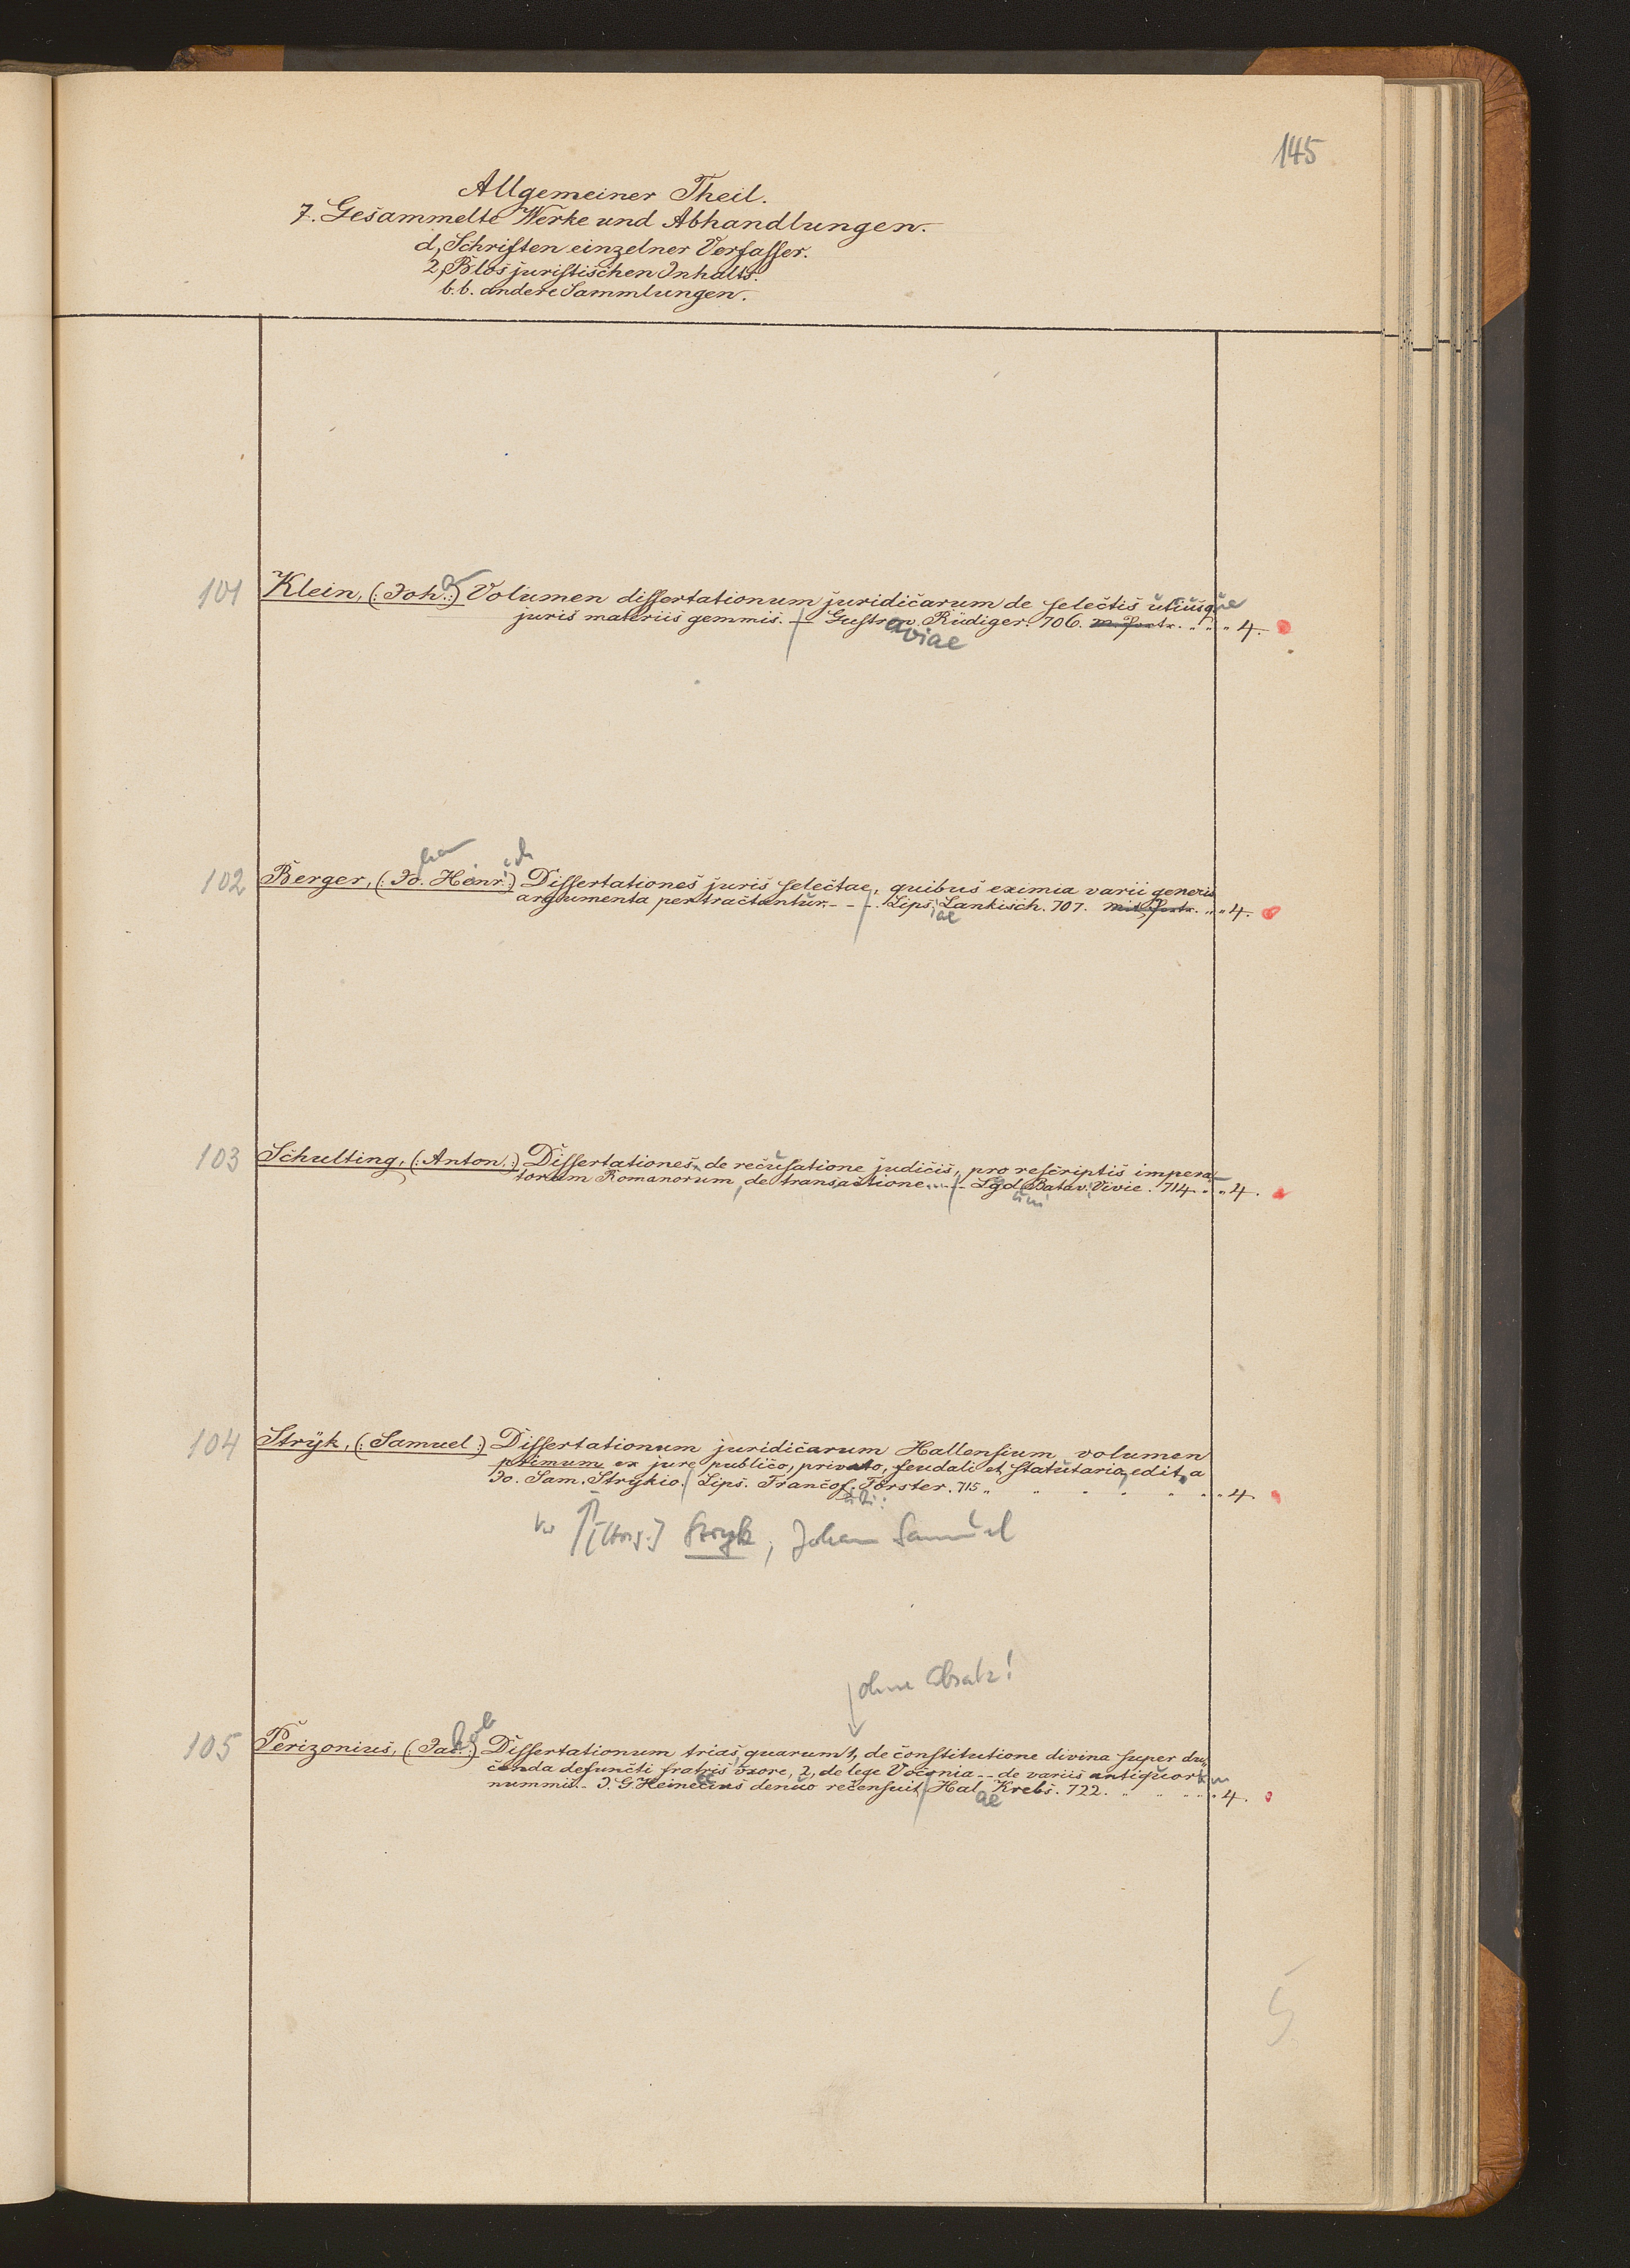 145
Allgemeiner Theil.
7. Gesammelte Werke und Abhandlungen.
d, Schriften einzelner Verfasser.
2, Blos juristischen Inhalts.
b.b. andere Sammlungen.
101 Klein, (: Joh. :) Volumen dissertationum juridicarum de selectis utriusque
juris materiis gemmis. — Gustrov. Rüdiger. 706. m. Portr. „ „ „ 4.
aviae
han ich
102 Berger, (: Jo. Heinr. :) Dissertationes juris selectae, quibus eximia varii generis
argumenta pertractantur. - - - Lips. Lankisch. 707. mit Portr. „ „ 4.
iae
103 Schulting, (: Anton. :) Dissertationes de recusatione judicis, pro rescriptis impera-
torum Romanorum, de transactione. . . - - Lgd. Batav. Vivie. 714. „ „ 4.
uni
104 Stryk, (: Samuel :) Dissertationum juridicarum Hallensium volumen
primum ex jure publico, privato, feudali et statutaria, edit. a
Jo. Sam. Strykio. Lips. Francof. Förster. 715 „ „ „ „ „ „ „ 4.
[Hrsg.] Stryk, Johann Samuel
ohne Absatz!
105 Perizonius, (: Jac. :) Dissertationum trias, quarum 1, de constitutione divina super du-
cenda defuncti fratris uxore, 2, de lege Voconia - - de variis antiquorum
nummis. - J. G. Heineccius denuo recensuit. Hal. Krebs. 722. „ „ „ „ „ 4.
ae
5